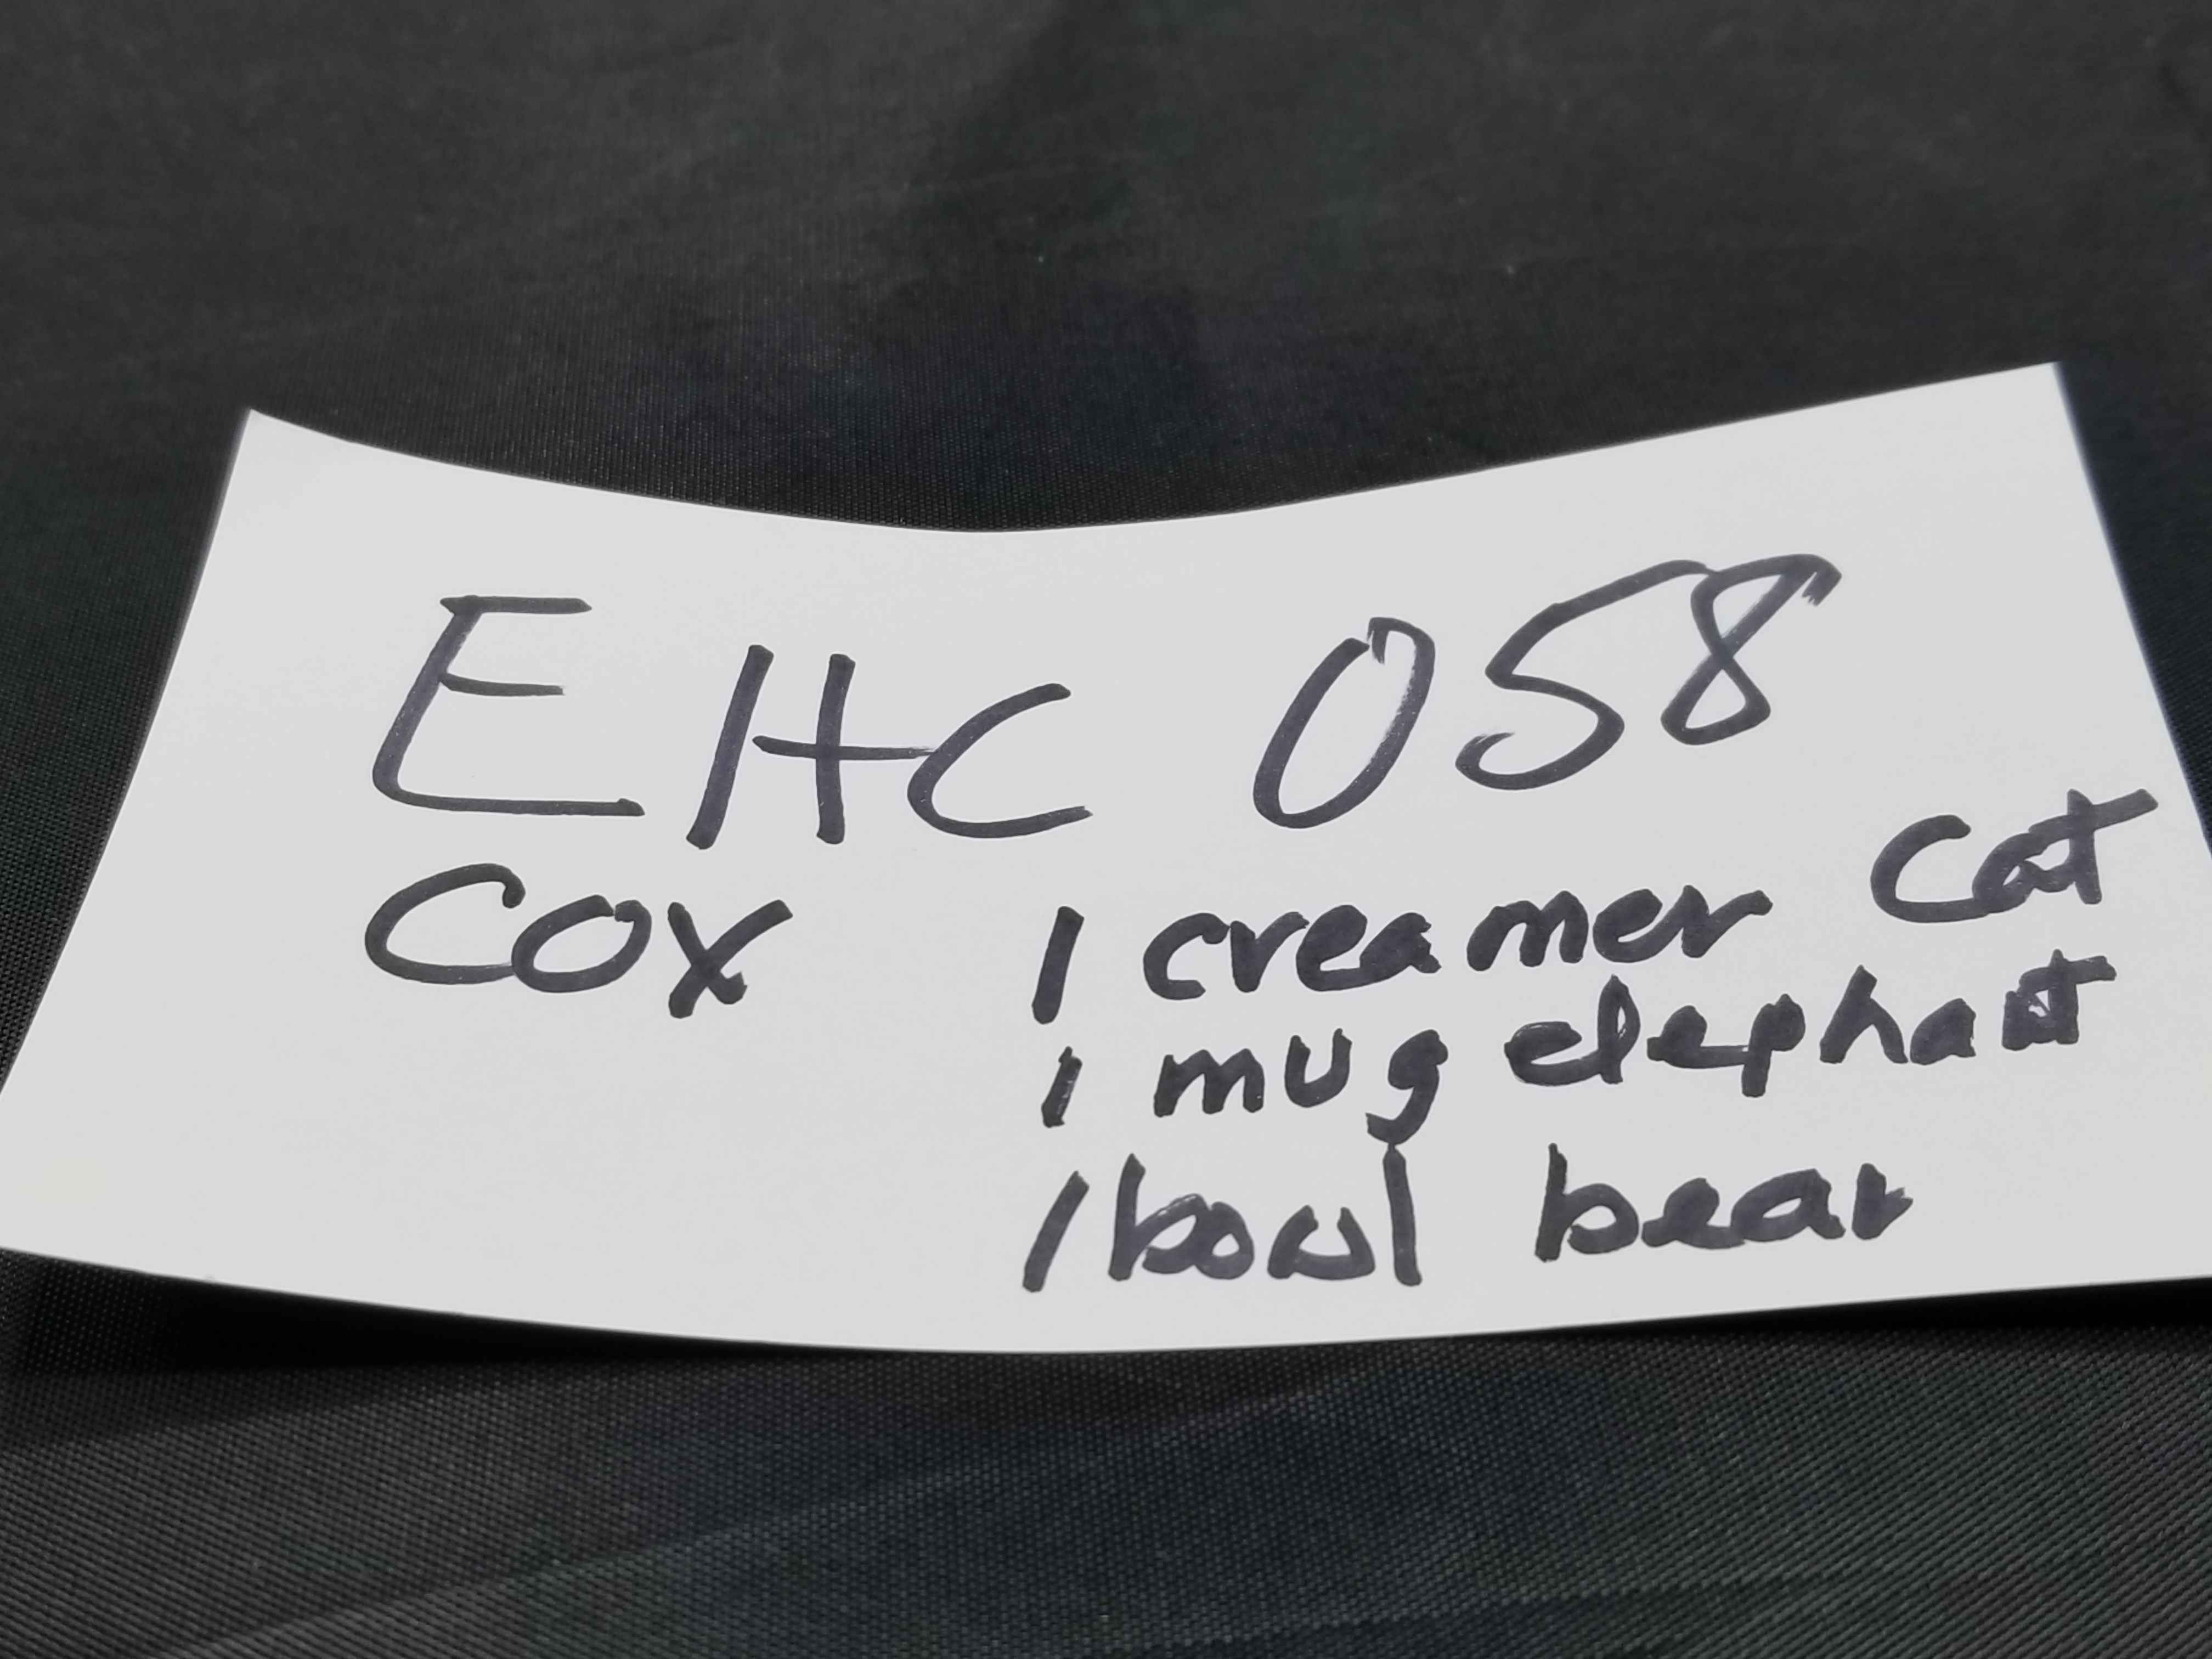 EHC 058
COX 1 creamer cat
1 mug elephant
1 bowl bear